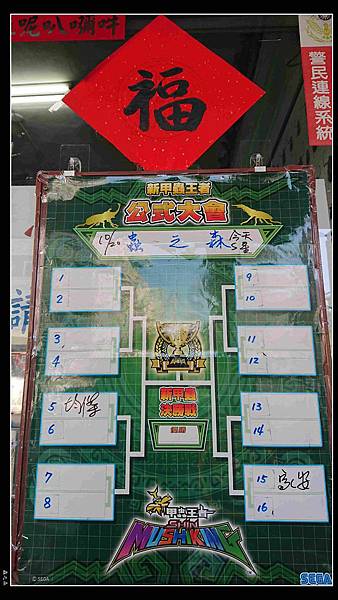 呢叭嘓吽
福
警民連線系統
新甲蟲王者
公式大會
10/20 蟲之森 今天
1
2
3
4
5 均澤
6
7
8
9
10
11
12
13
14
15 家安
16
新甲蟲
決勝戰
甲虫王者
SHIN
MUSHIKING
© SEGA
SEGA